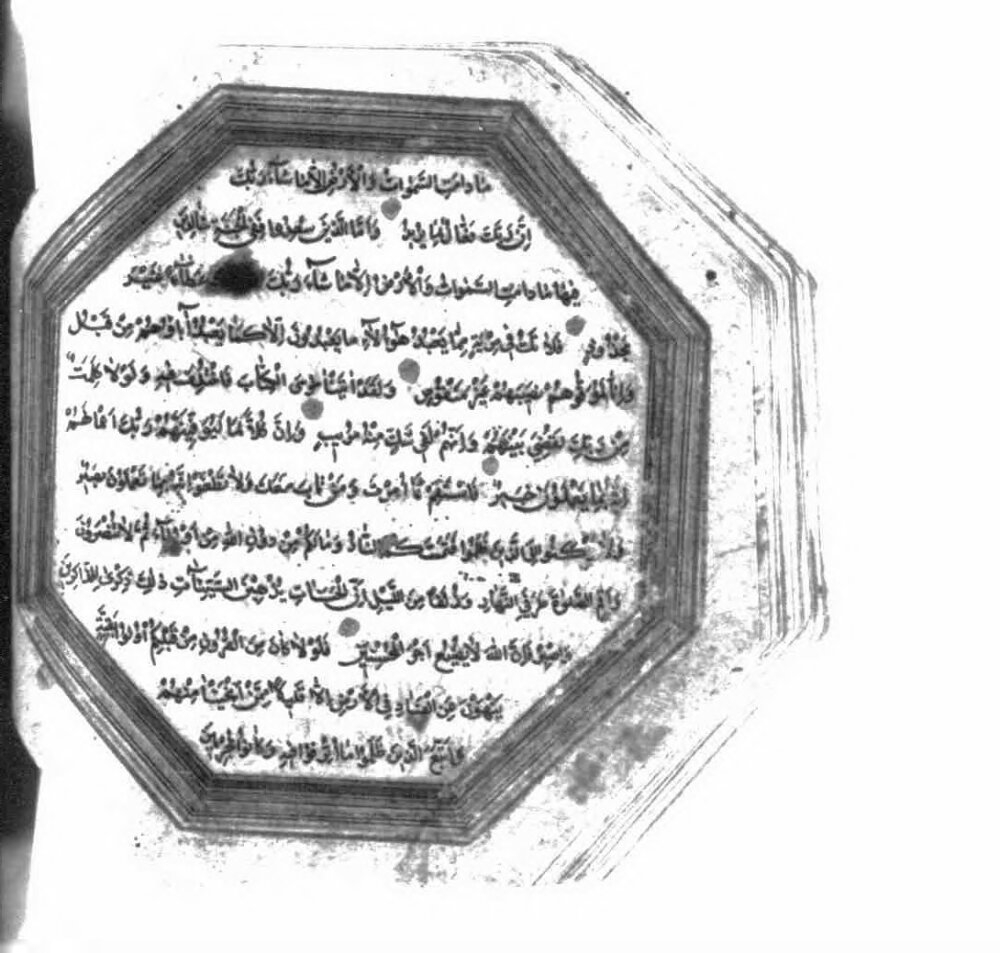 مَا دَامَتِ السَّمٰوَاتُ وَالْاَرْضُ اِلَّا مَا شَاۤءَ رَبُّكَ
اِنَّ رَبَّكَ فَعَّالٌ لِمَا يُرِيدُ وَاَمَّا الَّذِينَ سُعِدُوا فَفِى الْجَنَّةِ خَالِدِينَ
فِيهَا مَا دَامَتِ السَّمٰوَاتُ وَالْاَرْضُ اِلَّا مَا شَاۤءَ رَبُّكَ عَطَاۤءً غَيْرَ
مَجْذُوذٍ فَلَا تَكُ فِى مِرْيَةٍ مِمَّا يَعْبُدُ هٰۤؤُلَاۤءِ مَا يَعْبُدُونَ اِلَّا كَمَا يَعْبُدُ اٰبَاۤؤُهُمْ مِنْ قَبْلُ
وَاِنَّا لَمُوَفُّوهُمْ نَصِيبَهُمْ غَيْرَ مَنْقُوصٍ وَلَقَدْ اٰتَيْنَا مُوسَى الْكِتَابَ فَاخْتُلِفَ فِيهِ وَلَوْلَا كَلِمَةٌ
مِنْ رَبِّكَ لَقُضِىَ بَيْنَهُمْ وَاِنَّهُمْ لَفِى شَكٍّ مِنْهُ مُرِيبٍ وَاِنَّ كُلًّا لَمَّا لَيُوَفِّيَنَّهُمْ رَبُّكَ اَعْمَالَهُمْ
اِنَّهُ بِمَا يَعْمَلُونَ خَبِيرٌ فَاسْتَقِمْ كَمَا اُمِرْتَ وَمَنْ تَابَ مَعَكَ وَلَا تَطْغَوْا اِنَّهُ بِمَا تَعْمَلُونَ بَصِيرٌ
وَلَا تَرْكَنُوا اِلَى الَّذِينَ ظَلَمُوا فَتَمَسَّكُمُ النَّارُ وَمَا لَكُمْ مِنْ دُونِ اللّٰهِ مِنْ اَوْلِيَاۤءَ ثُمَّ لَا تُنْصَرُونَ
وَاَقِمِ الصَّلٰوةَ طَرَفَىِ النَّهَارِ وَزُلَفًا مِنَ الَّيْلِ اِنَّ الْحَسَنَاتِ يُذْهِبْنَ السَّيِّئَاتِ ذٰلِكَ ذِكْرٰى لِلذَّاكِرِينَ
وَاصْبِرْ فَاِنَّ اللّٰهَ لَا يُضِيعُ اَجْرَ الْمُحْسِنِينَ فَلَوْلَا كَانَ مِنَ الْقُرُونِ مِنْ قَبْلِكُمْ اُولُوا بَقِيَّةٍ
يَنْهَوْنَ عَنِ الْفَسَادِ فِى الْاَرْضِ اِلَّا قَلِيلًا مِمَّنْ اَنْجَيْنَا مِنْهُمْ
وَاتَّبَعَ الَّذِينَ ظَلَمُوا مَا اُتْرِفُوا فِيهِ وَكَانُوا مُجْرِمِينَ